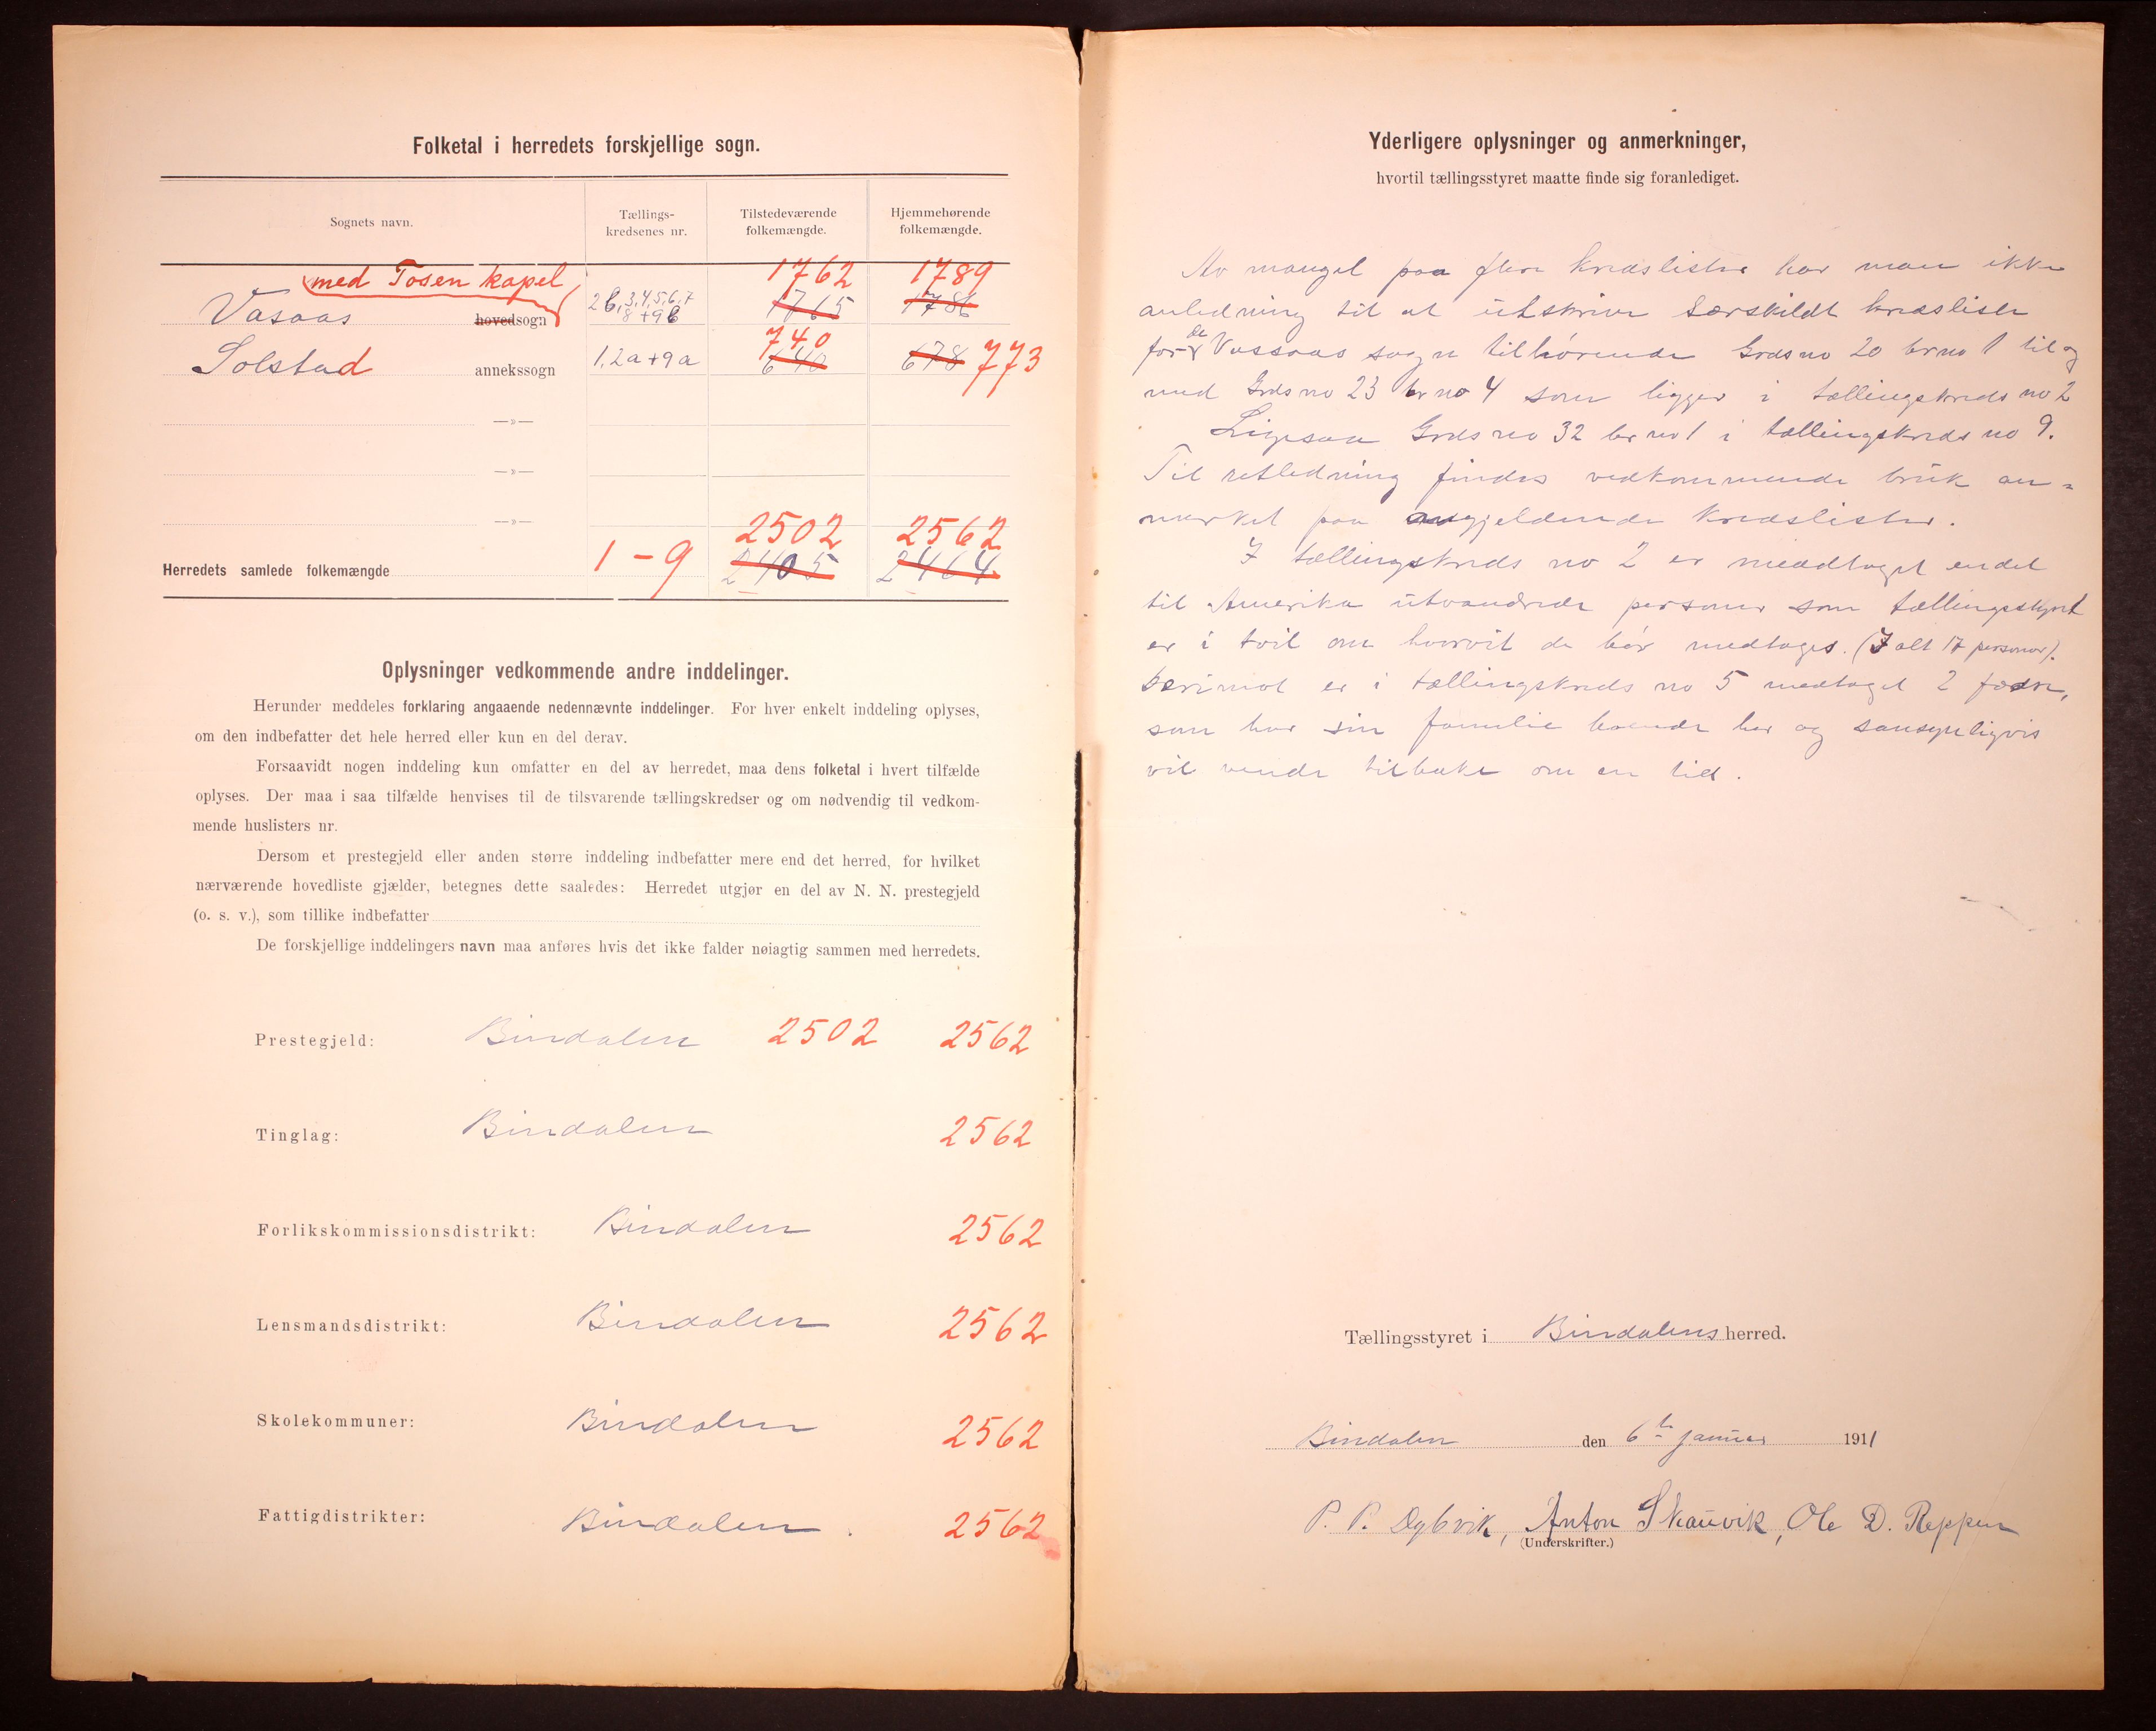 Folketal i herredets forskjellige sogn.
Sognets navn.
Tællings-
kredsenes nr.
Tilstedeværende
folkemængde.
Hjemmehørende
folkemængde.
med Tosen kapel 1762 1789
Vasaas hovedsogn 2b,3,4,5,6,7 1765 1786
8+9b
740
Solstad annekssogn 1,2a+9a 640 678 773
—»—
—»—
—»— 2502 2562
Herredets samlede folkemængde 1-9 2405 2464
Oplysninger vedkommende andre inddelinger.
Herunder meddeles forklaring angaaende nedennævnte inddelinger. For hver enkelt inddeling oplyses,
om den indbefatter det hele herred eller kun en del derav.
Forsaavidt nogen inddeling kun omfatter en del av herredet, maa dens folketal i hvert tilfælde
oplyses. Der maa i saa tilfælde henvises til de tilsvarende tællingskredser og om nødvendig til vedkom-
mende huslisters nr.
Dersom et prestegjeld eller anden større inddeling indbefatter mere end det herred, for hvilket
nærværende hovedliste gjælder, betegnes dette saaledes: Herredet utgjør en del av N. N. prestegjeld
(o. s. v.), som tillike indbefatter
De forskjellige inddelingers navn maa anføres hvis det ikke falder nøiagtig sammen med herredets.
Prestegjeld: Bindalen 2502 2562
Tinglag: Bindalen 2562
Forlikskommissionsdistrikt: Bindalen 2562
Lensmandsdistrikt: Bindalen 2562
Skolekommuner: Bindalen 2562
Fattigdistrikter: Bindalen. 2562
Yderligere oplysninger og anmerkninger,
hvortil tællingsstyret maatte finde sig foranlediget.
Av mangel paa flere kredslister har man ikke
anledning til at utskrive særskildt kredslister
for de Vassaas sogn tilhørende Grdsno 20 brno 1 til og
med Grdsno 23 brno 4 som ligger i tællingskreds no 2
Ligesaa Grdsno 32 brno 1 i tællingskreds no 9.
Til retledning findes vedkommende bruk an=
merket paa angjeldende kredslister.
I tællingskreds no 2 er meddtaget endel
til Amerika utvandrede personer som tællingsstyret
er i tvil om hvorvit de bør medtages. (I alt 17 personer).
Derimot er i tællingskreds no 5 medtaget 2 fædre,
som har sin familie boende her og sansynligvis
vil vende tilbake om en tid.
Tællingsstyret i Bindalens herred.
Bindalen den 6te januar 1911
P. P. Dybvik, Anton Skauvik, Ole D. Reppen
(Underskrifter.)